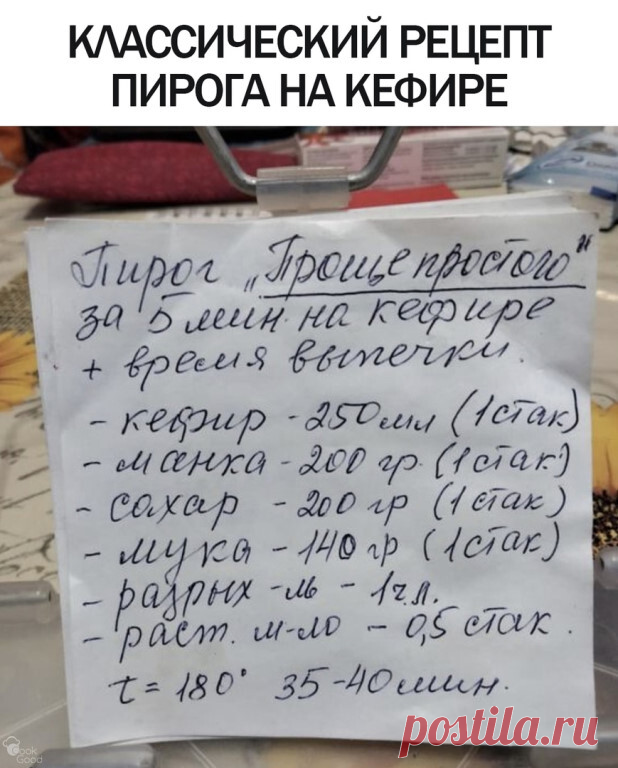 КЛАССИЧЕСКИЙ РЕЦЕПТ
ПИРОГА НА КЕФИРЕ
Пирог „Проще простого"
за 5 мин. на кефире
+ время выпечки.
- кефир - 250 мл (1 стак)
- манка - 200 гр. (1 стак)
- сахар - 200 гр (1 стак)
- мука - 140 гр (1 стак)
- разрых-ль - 1 ч.л.
- раст. м-ло - 0,5 стак.
t = 180° 35-40 мин.
Cook Good
postila.ru